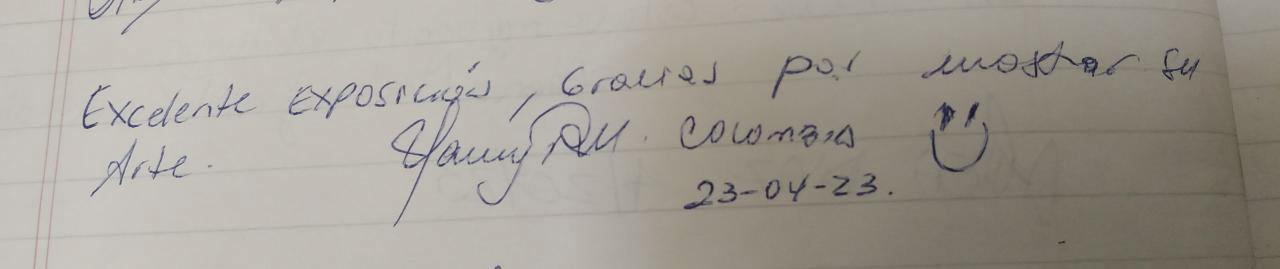 Excelente exposición, Gracias por mostrar su
Arte. Colombia
23-04-23.